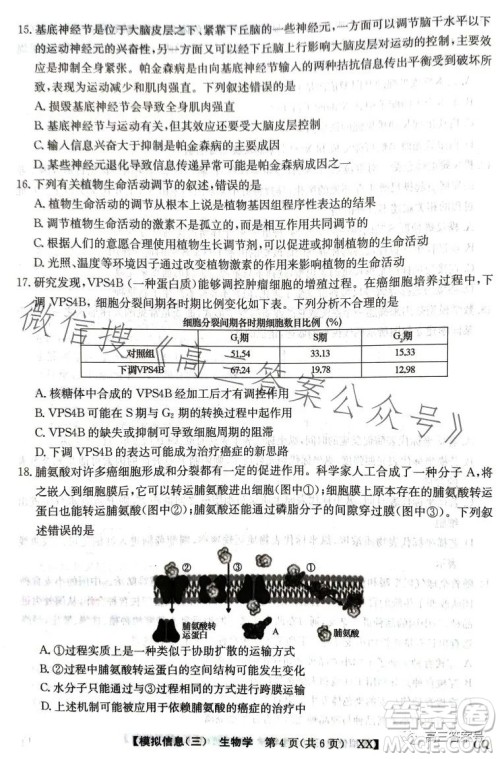 15. 基底神经节是位于大脑皮层之下、紧靠下丘脑的一些神经元,一方面又可以调节脑干水平以下
的运动神经元的兴奋性,另一方面又可以上行影响大脑皮层对运动的控制,主要功能是自主
抑制全身紧张。帕金森病是由基底神经节输入的两种拮抗信息传出平衡受到破坏所
致,表现为运动减少和肌肉强直。下列叙述错误的是
A. 损毁基底神经节会导致全身肌肉强直
B. 基底神经节与运动有关,但其效应还要受大脑皮层控制
C. 输入信息兴奋大于抑制是帕金森病的主要成因
D. 某些神经元退化导致信息传递异常可能是帕金森病成因之一
16. 下列有关植物生命活动调节的叙述,错误的是
A. 植物生命活动的调节从根本上说是植物基因组程序性表达的结果
B. 调节植物生命活动的激素不是孤立的,而是相互作用共同调节的
C. 农业上常用的植物生长调节剂,可以促进或抑制植物的生命活动
D. 光照、温度等环境因子通过改变植物激素的作用影响植物的生命活动
17. 研究发现,VPS4B(一种蛋白质)能够调控肿瘤细胞的增殖过程。在癌细胞培养过程中,下
调VPS4B,细胞分裂间期各时期比例变化如下表。下列分析不合理的是
细胞分裂间期各时期细胞数目比例(%)
G₁期 S期 G₂期
对照组 51.54 33.13 15.33
下调VPS4B 67.24 19.78 12.98
A. 核糖体中合成的VPS4B经加工后才有调控作用
B. VPS4B可能在S期与G₂期的转换过程中起作用
C. VPS4B的缺失或抑制可导致细胞周期的阻滞
D. 下调VPS4B可能成为治疗癌症的新思路
18. 脯氨酸对许多癌细胞形成和分裂都有一定的促进作用。科学家人工合成了一种分子A,将
之嵌入到细胞膜上,它可以转运脯氨酸(图中①);细胞膜上原本存在的脯氨酸转运
蛋白也能转运脯氨酸(图中②);脯氨酸还能通过磷脂分子的间隙穿过膜(图中③)。下列叙
述错误的是
② ③ ①
脯氨酸转
运蛋白
A
脯氨酸
A. ①过程实质上是一种类似于协助扩散的运输方式
B. ②过程中脯氨酸转运蛋白的空间结构可能发生变化
C. 水分子只能通过与③过程相同的方式进行跨膜运输
D. 阻断②③过程可能有助于依赖脯氨酸的癌症的治疗
【模拟信息(三) 生物学 第4页(共6页) XX】
微信搜《高三答案公众号》
答案圈